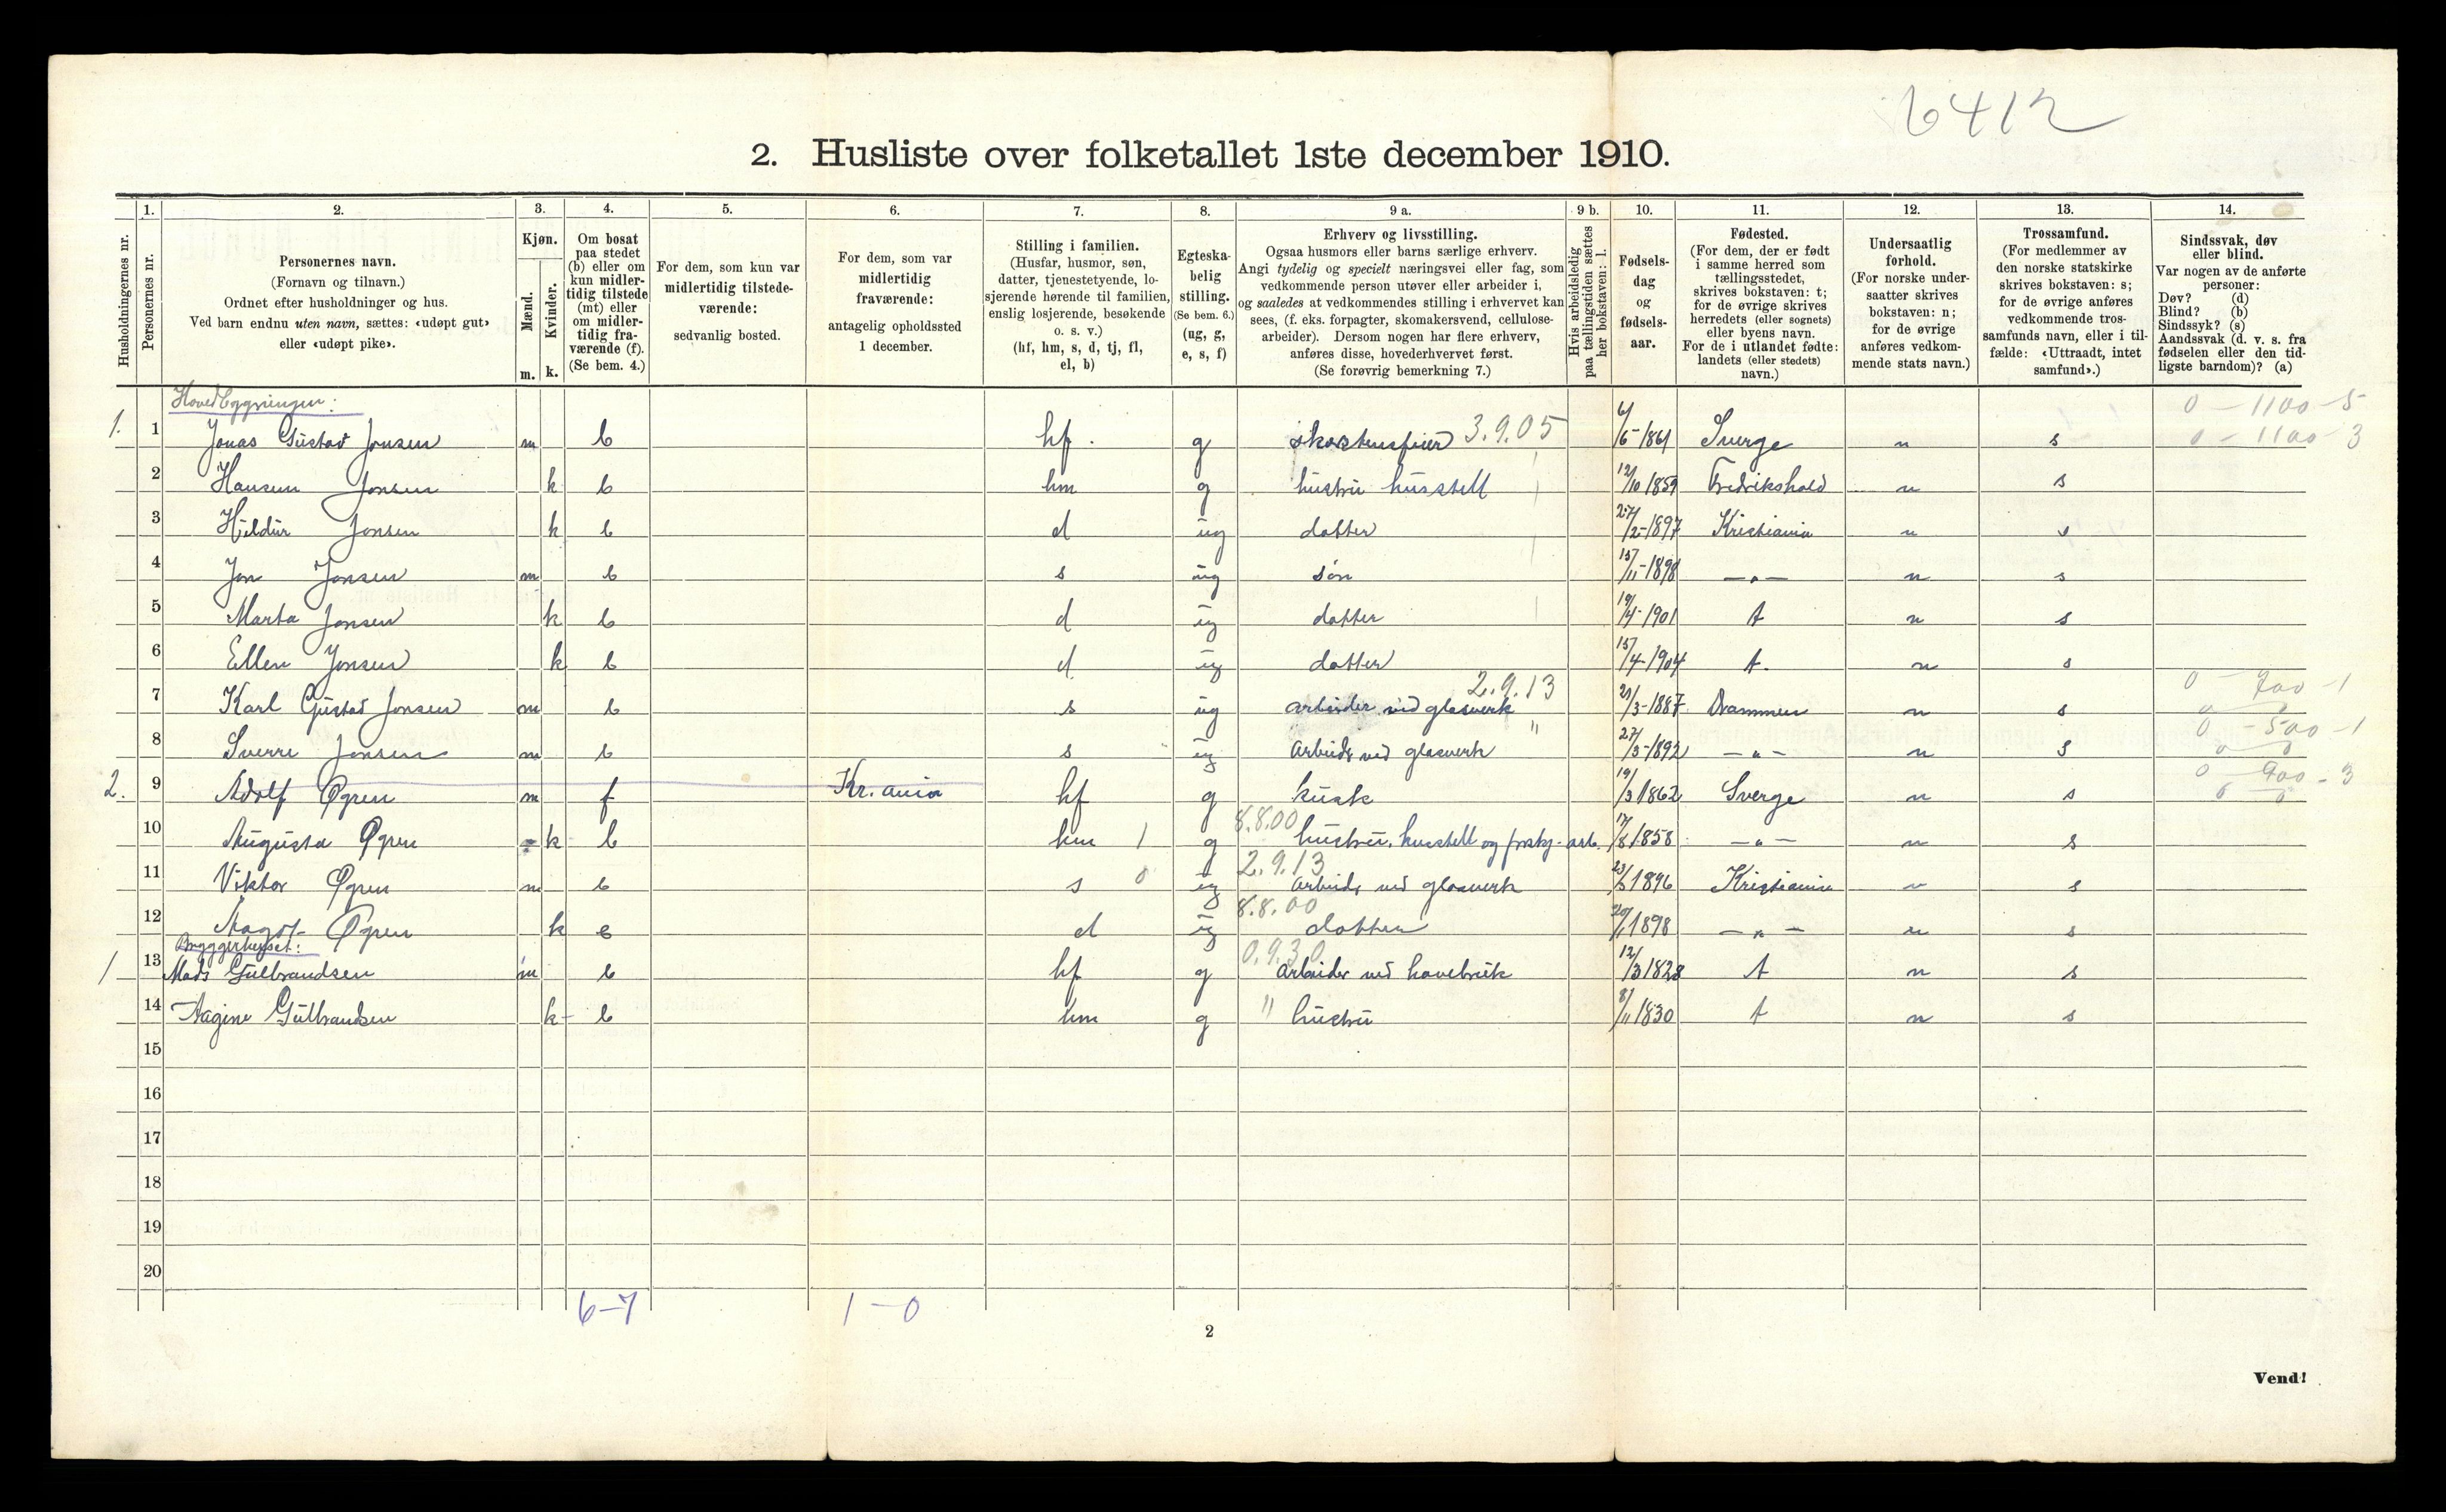 6412
2. Husliste over folketallet 1ste december 1910.
1. 2. 3. 4. 5. 6. 7. 8. 9 a. 9 b. 10. 11. 12. 13. 14.
Husholdningernes nr.
Personernes nr.
Personernes navn.
(Fornavn og tilnavn.)
Ordnet efter husholdninger og hus.
Ved barn endnu uten navn, sættes: «udøpt gut»
eller «udøpt pike».
Kjøn.
Mænd.
Kvinder.
m. k.
Om bosat
paa stedet
(b) eller om
kun midler-
tidig tilstede
(mt) eller
om midler-
tidig fra-
værende (f).
(Se bem. 4.)
For dem, som kun var
midlertidig tilstede-
værende:
sedvanlig bosted.
For dem, som var
midlertidig
fraværende:
antagelig opholdssted
1 december.
Stilling i familien.
(Husfar, husmor, søn,
datter, tjenestetyende, lo-
sjerende hørende til familien,
enslig losjerende, besøkende
o. s. v.)
(hf, hm, s, d, tj, fl,
el, b)
Egteska-
belig
stilling.
(Se bem. 6.)
(ug, g,
e, s, f)
Erhverv og livsstilling.
Ogsaa husmors eller barns særlige erhverv.
Angi tydelig og specielt næringsvei eller fag, som
vedkommende person utøver eller arbeider i,
og saaledes at vedkommendes stilling i erhvervet kan
sees, (f. eks. forpagter, skomakersvend, cellulose-
arbeider). Dersom nogen har flere erhverv,
anføres disse, hovederhvervet først.
(Se forøvrig bemerkning 7.)
Hvis arbeidsledig
paa tællingstiden sættes
her bokstaven: l.
Fødsels-
dag
og
fødsels-
aar.
Fødested.
(For dem, der er født
i samme herred som
tællingsstedet,
skrives bokstaven: t;
for de øvrige skrives
herredets (eller sognets)
eller byens navn.
For de i utlandet fødte:
landets (eller stedets)
navn.)
Undersaatlig
forhold.
(For norske under-
saatter skrives
bokstaven: n;
for de øvrige
anføres vedkom-
mende stats navn.)
Trossamfund.
(For medlemmer av
den norske statskirke
skrives bokstaven: s;
for de øvrige anføres
vedkommende tros-
samfunds navn, eller i til-
fælde: «Uttraadt, intet
samfund».)
Sindssvak, døv
eller blind.
Var nogen av de anførte
personer:
Døv? (d)
Blind? (b)
Sindssyk? (s)
Aandssvak (d. v. s. fra
fødselen eller den tid-
ligste barndom)? (a)
Hovedbygningen: 0 - 1100 - 5
1. 1 Jonas Gustav Jonsen m b hf. g skorstensfeier 3.9.05 6/6-1861 Sverge n s 0 - 1100 3
2 Hansen Jonsen k b hm g hustru husstell 12/10 1859 Fredrikshald n s
3 Hildur Jonsen k b d ug datter 27/2-1897 Kristiania n s
4 Jon Jonsen m b s ug søn 15/11-1898 —„— n s
5 Marta Jonsen k b d ug datter 19/4-1901 t n s
6 Ellen Jonsen k b d ug datter 15/4-1904 t. n s
2.9.13 0 - 700 - 1
7 Karl Gustav Jonsen m b s ug arbeider ved glasverk 21/3-1887 Drammen n s
" 0 - 500 - 1
8 Sverre Jonsen m b s ug Arbeid ved glasverk 27/3-1892 —„— n s
2. 9 Adolf Øgren m f Kr.ania hf g kusk 19/3 1862 Sverge n s 0 900 - 3
8.8.00
10 Augusta Øgren k b hm 1 g hustru, husstell og forskj. arb. 17/8 1858 —„— n s
2.9.13
11 Viktor Øgren m b s 0 ug Arbeid ved glasverk 23/3 1896 Kristiania n s
8.8.00
12 Aagot Øgren k b d ug datter 1898 —„— n s
Bryggerhuset: 0.9.30
1 13 Mads Gulbrandsen m b hf g arbeider ved havebruk 12/3 1828 t n s
14 Aagine Gulbrandsen k b hm g " hustru 8/11 1830 t n s
15
16
17
18
19
20
6-7 1-0
2
Vend!